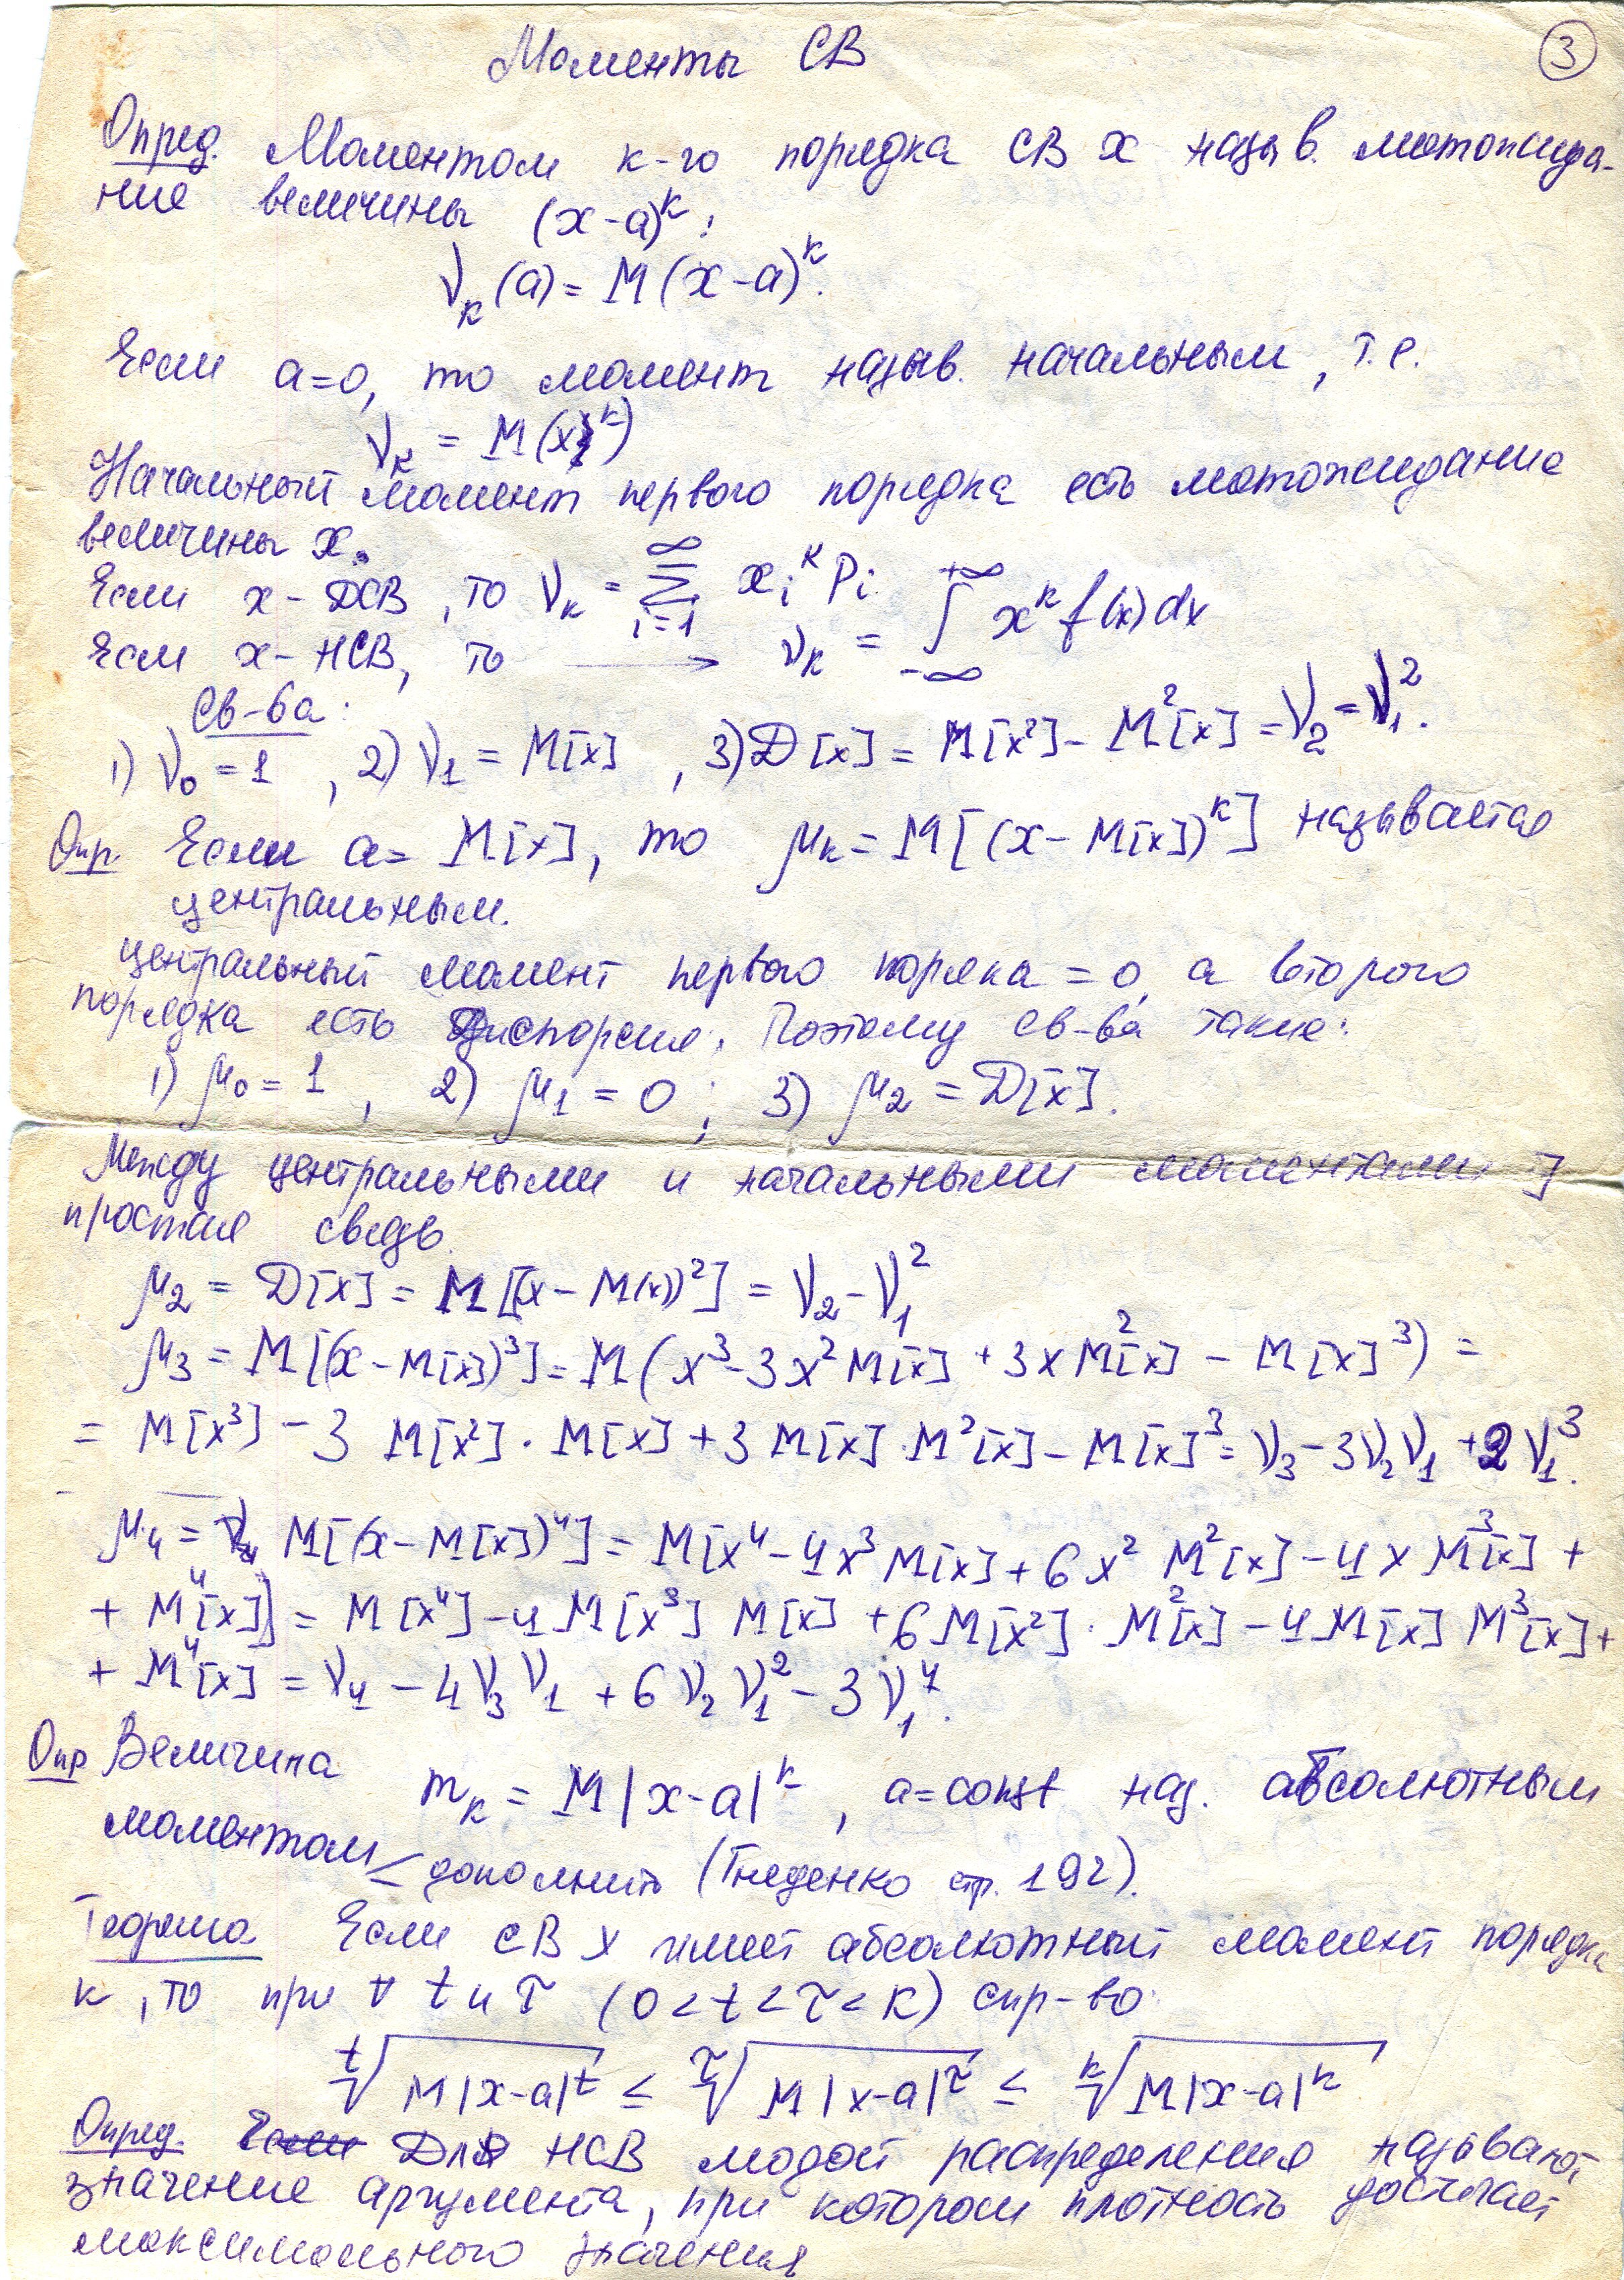 Моменты СВ
3
Опред. Моментом к-го порядка СВ x назыв. матожида-
ние величины (x-a)^k:
ν_k(a) = M(x-a)^k.
Если a=0, то момент назыв. начальным, т.е.
ν_k = M(x^k)
Начальный момент первого порядка есть матожидание
величины x.
Если x - ДСВ, то ν_k = ∑_{i=1}^{∞} x_i^k p_i
Если x - НСВ, то ⟶ ν_k = ∫_{-∞}^{+∞} x^k f(x)dx
Св-ва:
1) ν_0 = 1, 2) ν_1 = M[x], 3) D[x] = M[x²] - M²[x] = ν_2 = ν_1².
Опр. Если a = M[x], то μ_k = M[(x - M[x])^k] называется
центральным.
Центральный момент первого поряка = 0, а второго
порядка есть дисперсия. Поэтому св-ва такие:
1) μ_0 = 1, 2) μ_1 = 0; 3) μ_2 = D[x].
Между центральными и начальными моментами ∃
простая связь.
μ_2 = D[x] = M[(x - M(x))²] = ν_2 - ν_1²
μ_3 = M[(x - M[x])³] = M(x³ - 3x² M[x] + 3x M²[x] - M[x]³) =
= M[x³] - 3 M[x²] · M[x] + 3 M[x] · M²[x] - M[x]³ = ν_3 - 3ν_2ν_1 + 2ν_1³.
μ_4 = M[(x - M[x])⁴] = M[x⁴ - 4x³ M[x] + 6x² M²[x] - 4x M³[x] +
+ M⁴[x]] = M[x⁴] - 4 M[x³] M[x] + 6 M[x²] · M²[x] - 4 M[x] M³[x] +
+ M⁴[x] = ν_4 - 4ν_3ν_1 + 6ν_2ν_1² - 3ν_1⁴.
Опр Величина m_k = M|x-a|^k, a=const наз. абсолютным
моментом < дополнить (Гнеденко стр. 192).
Теорема Если СВ x имеет абсолютный момент порядка
к, то при ∀ t и τ (0 < t < τ < k) спр-во
ᵗ√M|x-a|^t ≤ ^τ√M|x-a|^τ ≤ ᵏ√M|x-a|^k
Опред. Для НСВ модой распределения называют
значение аргумента, при котором плотность достигает
максимального значения